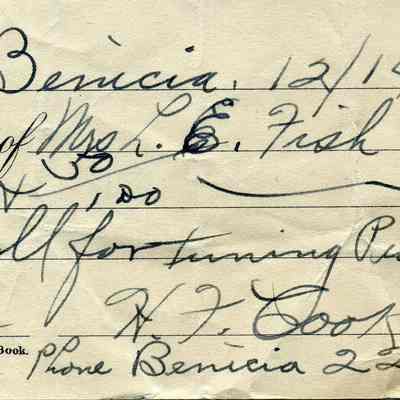 Benicia. 12/1
of Mrs L. E. Fish
50
& 1 00
ll for tuning
H. F. Cook
Book. Phone Benicia 22